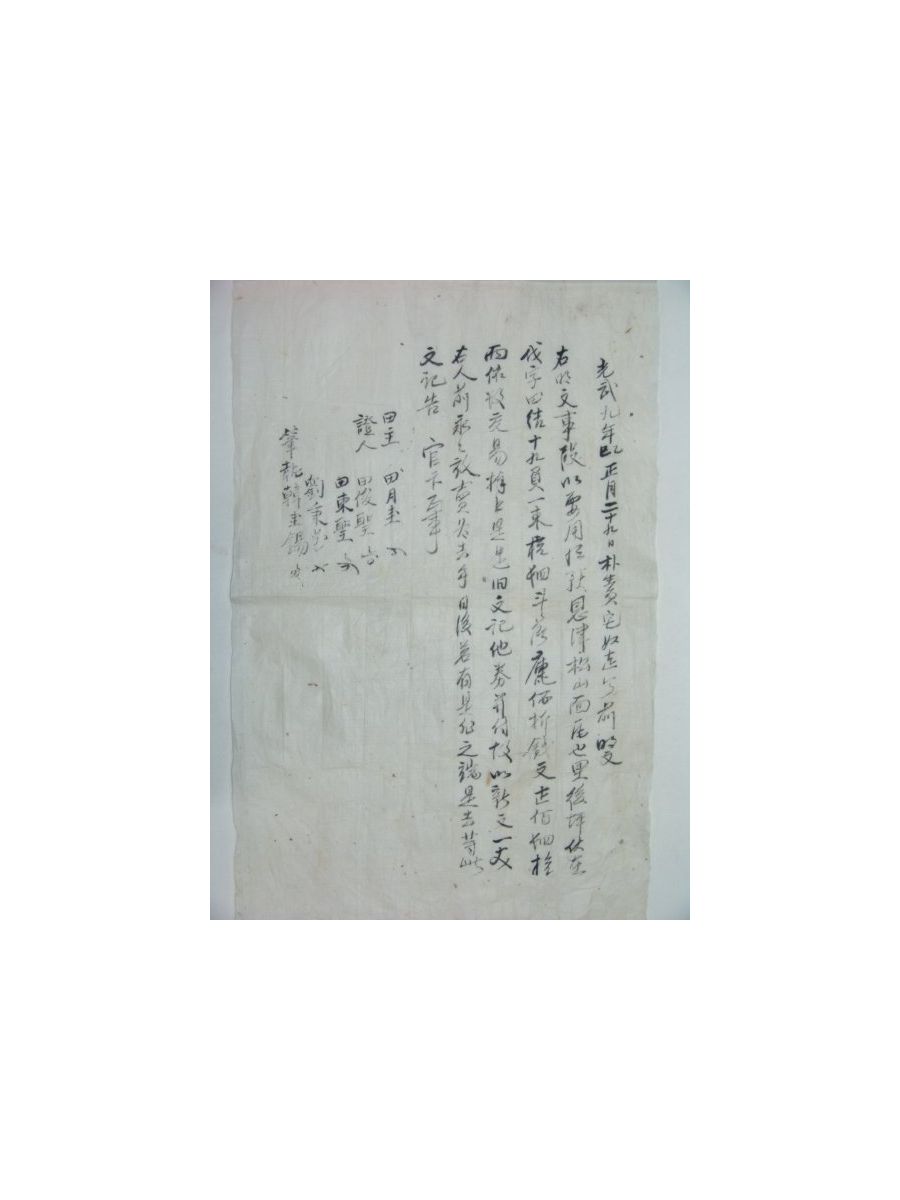 光武九年乙巳正月二十九日朴責宅奴 前明文
右明文事段以要用 恩津松山面 也里後坪伏在
伐字田結十九負一束 斗落 價折錢文 佰 拾
兩依數交易捧上是遣旧文記他券并付故以新文一丈
右人前永永放賣為去乎日後若有是非之端是去等此
文記告 官卞正事
田主 田月圭
證人 田俊聖
田東聖
劉秉
筆執韓圭錫